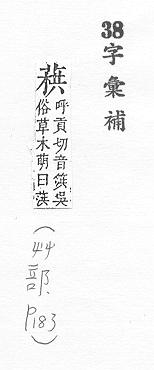 38字彙補
呼貢切音篊吳
俗草木萌曰
(艸部. P183)